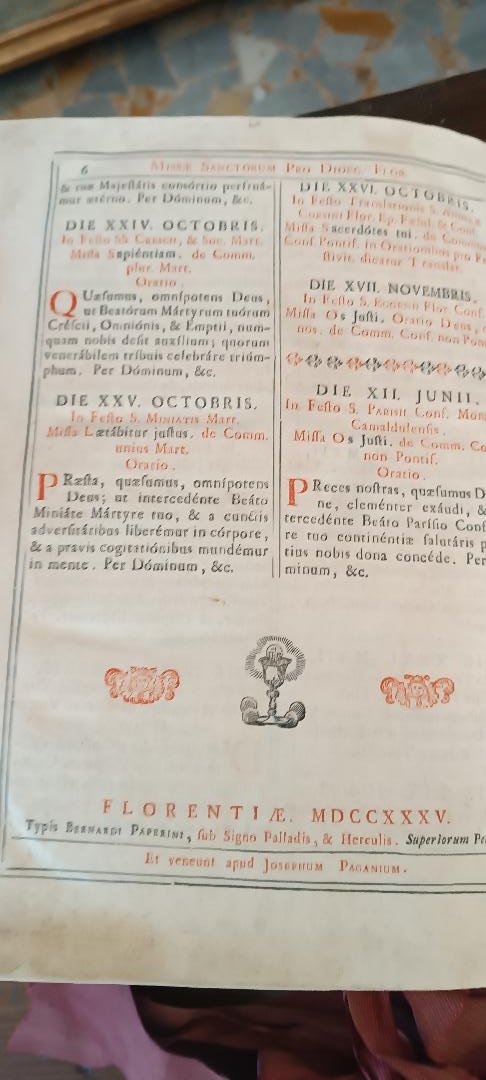 6 Missæ Sanctorum Pro Dioec. Flor.
& tuæ Majeſtátis consórtio perfruá-
mur ætérno. Per Dóminum, &c.
DIE XXIV. OCTOBRIS.
In Feſto SS. Crescii, & Soc. Mart.
Miſſa Sapiéntiam. de Comm.
plur. Mart.
Oratio.
QUæſumus, omnípotens Deus,
ut Beatórum Mártyrum tuórum
Créſcii, Omniónis, & Emptii, num-
quam nobis deſit auxílium; quorum
venerábilem tríbuis celebráre trium-
phum. Per Dóminum, &c.
DIE XXV. OCTOBRIS.
In Feſto S. Miniatis Mart.
Miſſa Lætábitur juſtus. de Comm.
unius Mart.
Oratio.
PRæſta, quæſumus, omnípotens
Deus; ut intercedénte Beáto
Miniáte Mártyre tuo, & a cunctis
adverſitátibus liberémur in córpore,
& a pravis cogitatiónibus mundémur
in mente. Per Dóminum, &c.
DIE XXVI. OCTOBRIS.
In Feſto Translationis S. Andreæ
Corsini Flor. Ep. Fæſul. & Conf.
Miſſa Sacerdótes tui. de Commun.
Conf. Pontif. in Orationibus pro
ſtivit. dicatur Translat.
DIE XVII. NOVEMBRIS.
In Feſto S. Eugenii Flor. Conf.
Miſſa Os Juſti. Oratio Deus,
nos. de Comm. Conf. non
DIE XII. JUNII.
In Feſto S. Parisii Conf. Mon.
Camaldulenſis.
Miſſa Os Juſti. de Comm.
non Pontif.
Oratio.
PReces noſtras, quæſumus
ne, cleménter exáudi, &
tercedénte Beáto Paríſio
re tuo continéntiæ ſalutáris
tius nobis dona concéde. Per
minum, &c.
FLORENTIÆ. MDCCXXXV.
Typis Bernardi Paperini, ſub Signo Palladis, & Herculis. Superiorum
Et veneunt apud Josephum Paganium.